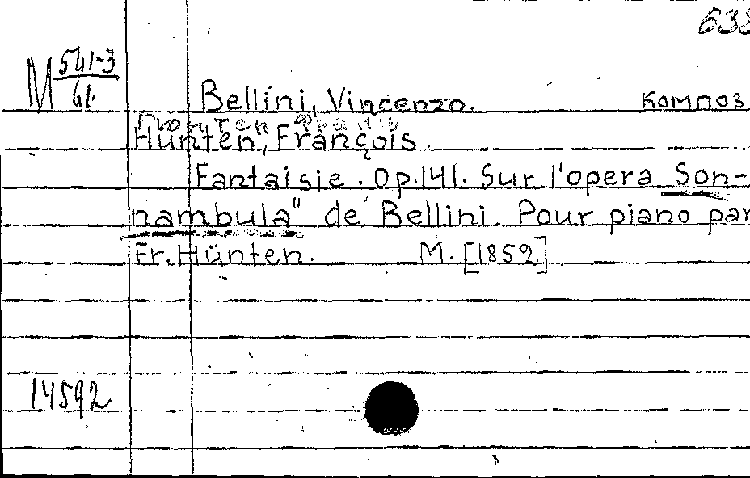 638
M 541-3
61
Bellini, Vincenzo. Композ
Hünten, François
Fantaisie. Op. 141. Sur l'opera Son-
nambula" de Bellini. Pour piano par
Fr. Hünten. M. [1852]
14592